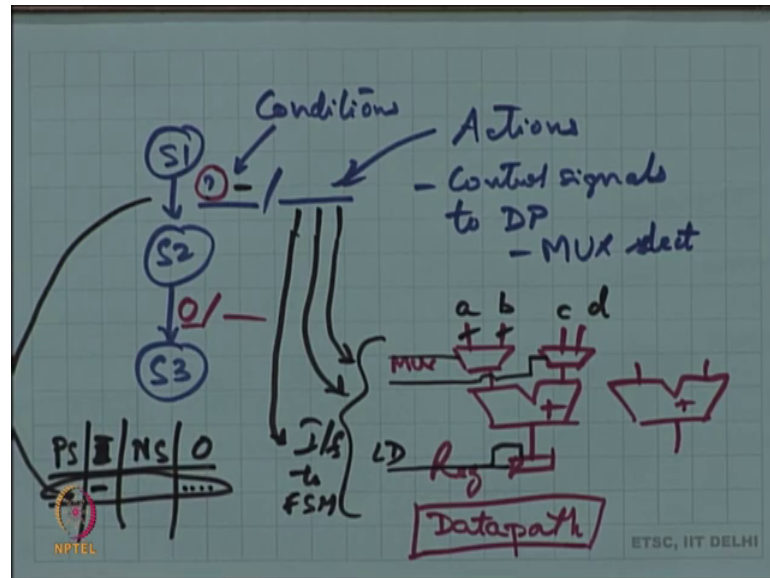 Conditions
Actions
- Control signals
to DP
- MUX select
S1
- /
S2
0/ —
S3
a b c d
+ +
MUX
+
+
LD
Reg
I/f
to
FSM
Datapath
PS | I | NS | O
- ....
NPTEL
ETSC, IIT DELHI